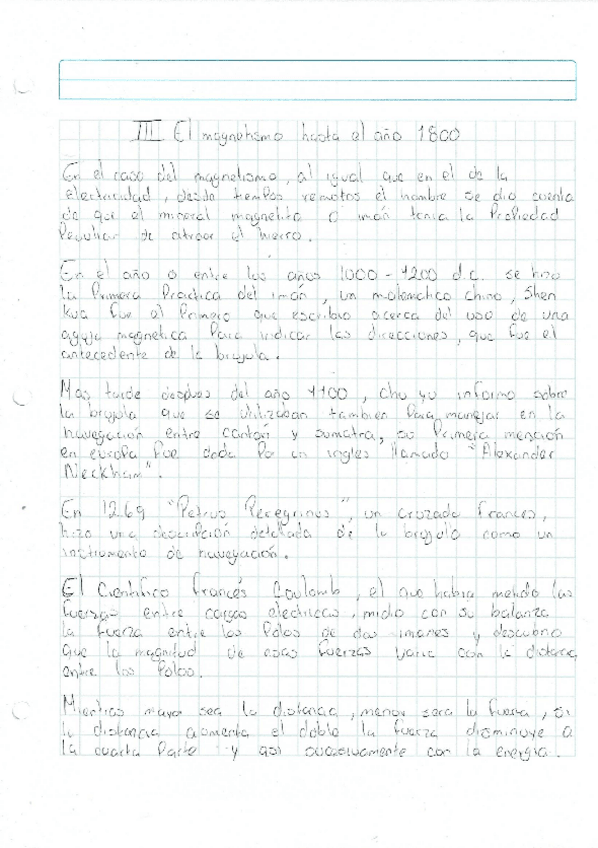 III El magnetismo hasta el año 1800
En el caso del magnetismo, al igual que en el de la
electricidad, desde tiempos remotos el hombre se dio cuenta
de que el mineral magnetita o imán tenia la Propiedad
Peculiar de atraer el hierro.
En el año o entre los años 1000-1200 d.c. se hizo
la Primera Practica del imán, un matematico chino, Shen
Kua fue el Primero que escribio acerca del uso de una
aguja magnetica Para indicar las direcciones, que fue el
antecedente de la brujula.
Mas tarde despues del año 1100, Chu yu informo sobre
la brujula que se utilizaban tambien Para manejar en la
navegación entre cantón y sumatra, su Primera mención
en europa fue dada Por un ingles llamado "Alexander
Neckham".
En 1269 "Petrus Peregrinus", un cruzado frances,
hizo una descripción detallada de la brujula como un
instrumento de navegación.
El Cientifico francés Coulomb, el que habia medido las
fuerzas entre cargas electricas, midio con su balanza
la fuerza entre los Polos de dos imanes y descubrio
que la magnitud de esas fuerzas varia con la distancia
entre los Polos.
Mientras mayor sea la distancia, menor sera la fuerza, si
la distancia aumenta el doble la fuerza disminuye a
la cuarta Parte y asi sucesivamente con la energia.